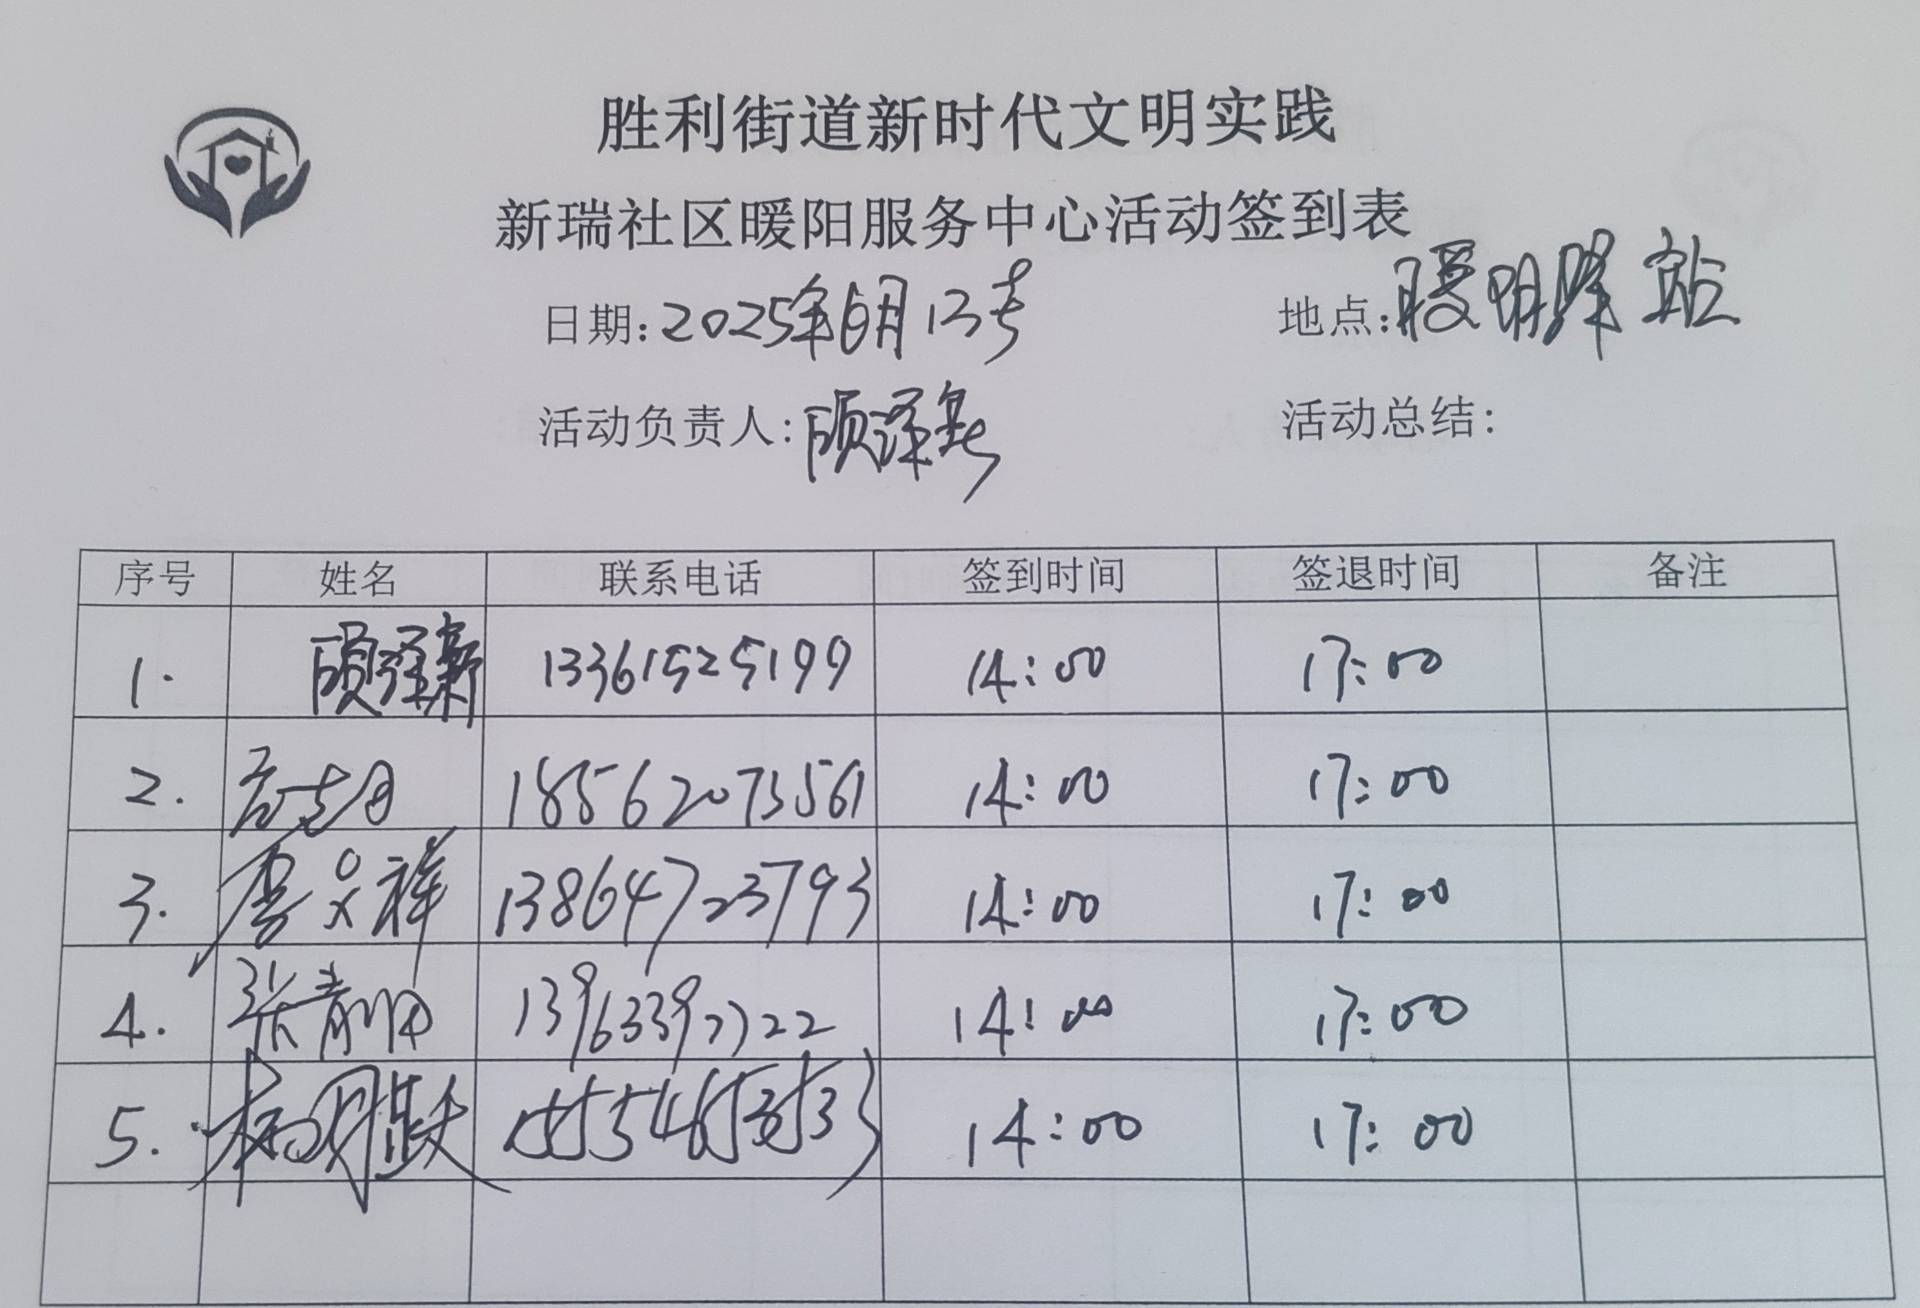 胜利街道新时代文明实践
新瑞社区暖阳服务中心活动签到表
日期:2025年6月13号 地点:暖阳驿站
活动负责人:顾泽新 活动总结:
序号 姓名 联系电话 签到时间 签退时间 备注
1. 顾泽新 13361525199 14:00 17:00
2. 18562073561 14:00 17:00
3. 李义祥 13864723793 14:00 17:00
4. 张青 13963397722 14:00 17:00
5. 14:00 17:00